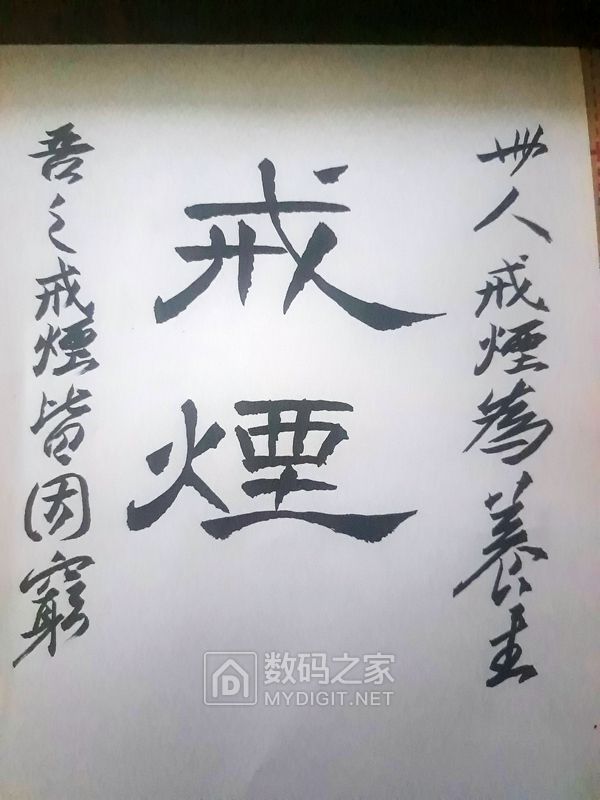 世人戒煙為養生
戒煙
吾之戒煙皆因窮
数码之家
MYDIGIT.NET